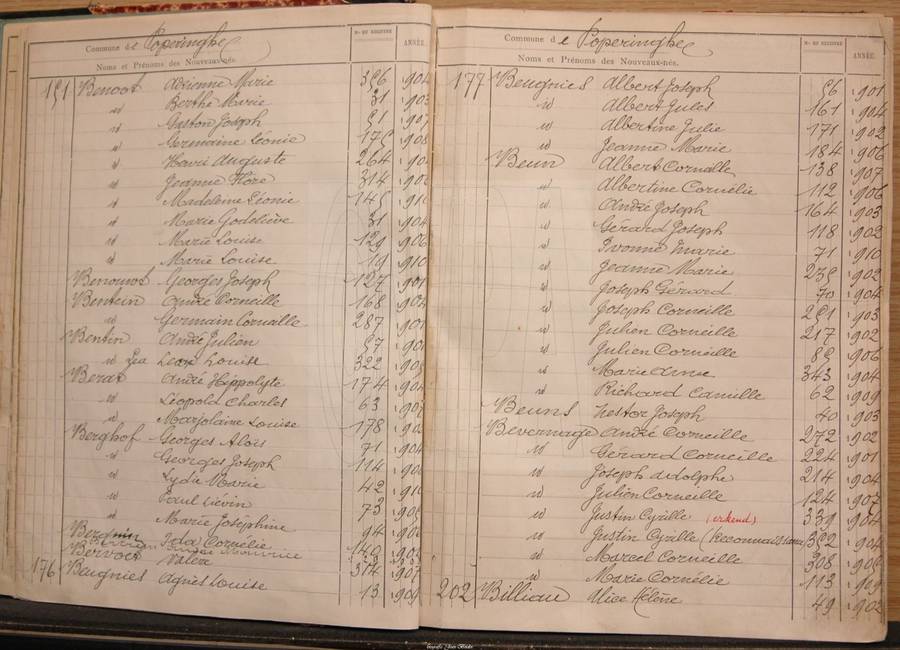 Commune de Poperinghe
Nos DU REGISTRE
ANNÉE
Noms et Prénoms des Nouveaux-nés.
151 Benoot Adrienne Marie 356
id Berthe Marie 31 1903
id Gaston Joseph 51
id Germaine Léonie 175
id Henri Auguste 264
id Jeanne Flore 314
id Madeleine Léonie 145
id Marie Godelieve 31 1904
id Marie Louise 129 1906
id Marie Louise 19 1910
Benouwt Georges Joseph 127 1901
Bentein André Corneille 168 1904
id Germain Corneille 287 1901
Bentin André Julien 57
id Léa Louise 322
Berat André Hippolyte 174
id Léopold Charles 63
id Marjolaine Louise 178
Berghof Georges Aloïs 71 1904
id Georges Joseph 114
id Lydie Marie 42
id Paul Liévin 73
id Marie Joséphine 94
Ida Cornélie 140
Bervoet Valère 314 1907
176 Beugnies Agnès Louise 13 1909
Commune de Poperinghe
Nos DU REGISTRE
ANNÉE
Noms et Prénoms des Nouveaux-nés.
177 Beugnies Albert Joseph 56 1901
id Albert Jules 161 1904
id Albertine Julie 171 1902
id Jeanne Marie 184 1906
Beun Albert Corneille 138 1907
id Albertine Cornélie 112 1906
id André Joseph 164 1903
id Gérard Joseph 118 1902
id Yvonne Marie 71 1910
id Jeanne Marie 235 1902
id Joseph Gérard 70 1904
id Joseph Corneille 251 1903
id Julien Corneille 217 1902
id Julien Corneille 85 1906
id Marie Anne 343 1904
id Richard Camille 62 1909
Beuns Nestor Joseph 40 1903
Bevernage André Corneille 272 1902
id Gérard Corneille 224 1901
id Joseph Adolphe 214 1904
id Julien Corneille 124 1907
id Justin Cyrille (erkend) 339 1904
id Justin Cyrille (Reconnaissance) 352 1904
id Marcel Corneille 308 1906
id Marie Cornélie 113 1909
202 Billiau Alice Hélène 49 1902